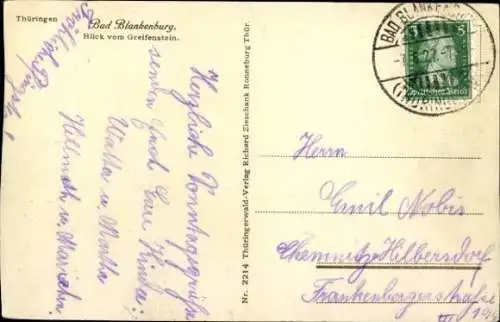 Thüringen
Bad Blankenburg.
Blick vom Greifenstein.
Fröhliche
Herzliche Sonntagsgrüße
senden Euch Eure Kinder:
Walter u. Martha
Hellmuth u. Mariechen.
Nr. 2214 Thüringerwald-Verlag Richard Zieschank Ronneburg Thür.
BAD BLANKENB
27.
(THÜRIN
5
5
Deutsches Reich
Herrn
Emil Nobis
Chemnitz-Hilbersdorf
Frankenbergerstraße